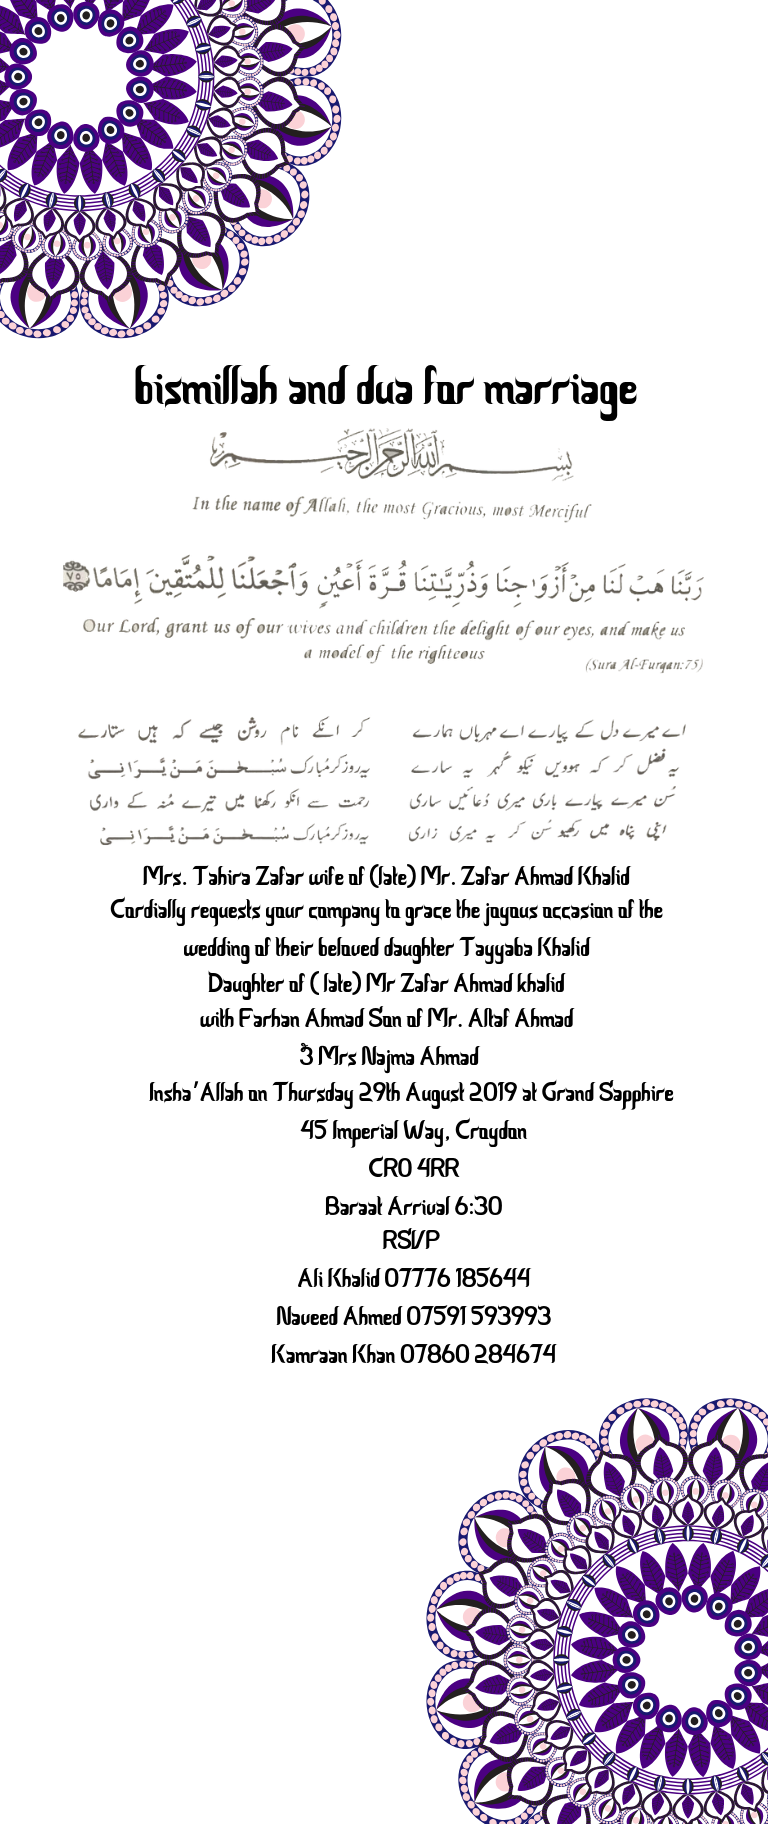 bismillah and dua for marriage
بِسْمِ اللّٰهِ الرَّحْمٰنِ الرَّحِيْمِ
In the name of Allah, the most Gracious, most Merciful
رَبَّنَا هَبْ لَنَا مِنْ أَزْوَٰجِنَا وَذُرِّيَّـٰتِنَا قُرَّةَ أَعْيُنٍ وَٱجْعَلْنَا لِلْمُتَّقِينَ إِمَامًا ٧٥
Our Lord, grant us of our wives and children the delight of our eyes, and make us
a model of the righteous
(Sura Al-Furqan:75)
اے میرے دل کے پیارے اے مہرباں ہمارے کر انکے نام روشن جیسے کہ ہیں ستارے
یہ فضل کر کہ ہوویں نیکو گُہر یہ سارے یہ روز کر مُبارک سُبْحٰنَ مَنْ یَّرَانِیْ
سُن میرے پیارے باری میری دُعائیں ساری رحمت سے انکو رکھنا میں تیرے مُنہ کے واری
اپنی پناہ میں رکھیو سُن کر یہ میری زاری یہ روز کر مُبارک سُبْحٰنَ مَنْ یَّرَانِیْ
Mrs. Tahira Zafar wife of (late) Mr. Zafar Ahmad Khalid
Cordially requests your company to grace the joyous occasion of the
wedding of their beloved daughter Tayyaba Khalid
Daughter of ( late) Mr Zafar Ahmad khalid
with Farhan Ahmad Son of Mr. Altaf Ahmad
& Mrs Najma Ahmad
Insha'Allah on Thursday 29th August 2019 at Grand Sapphire
45 Imperial Way, Croydon
CR0 4RR
Baraat Arrival 6:30
RSVP
Ali Khalid 07776 185644
Naveed Ahmed 07591 593993
Kamraan Khan 07860 284674